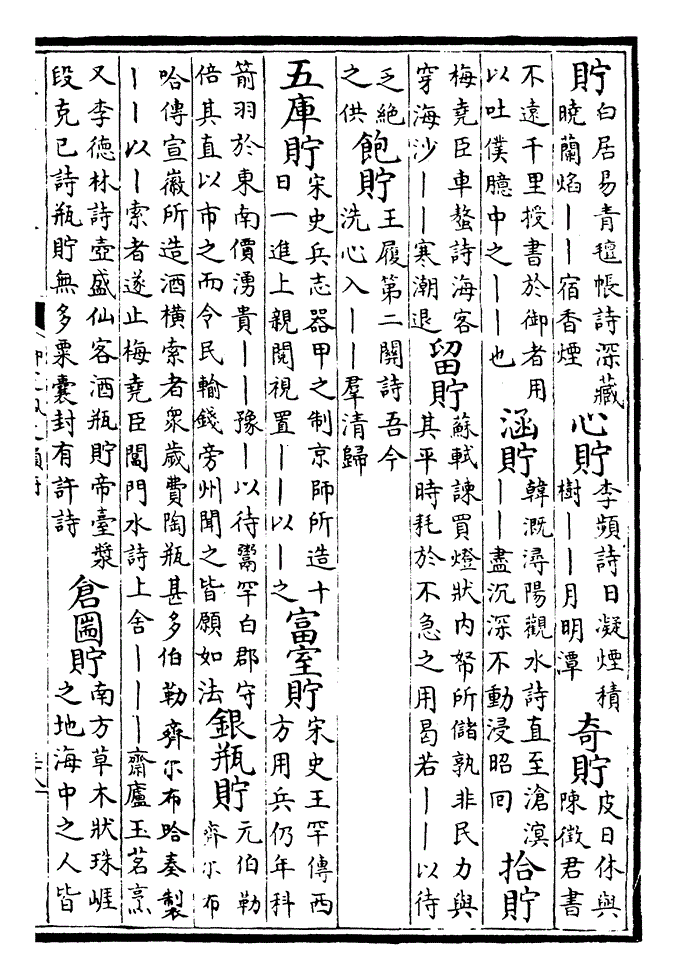 貯
白居易青氊帳詩深藏
曉蘭焰｜｜宿香煙
心貯
李頻詩日凝煙積
樹｜｜月明潭
奇貯
皮日休與
陳徵君書
不遠千里授書於御者用
以吐僕臆中之｜｜也
涵貯
韓溉潯陽觀水詩直至滄溟
｜｜盡沉深不動浸昭回
拾貯
梅堯臣車螯詩海客
穿海沙｜｜寒潮退
留貯
蘇軾諫買燈狀内帑所儲孰非民力與
其平時耗於不急之用曷若｜｜以待
乏絶
之供
飽貯
王履第二關詩吾今
洗心入｜｜羣清歸
五庫貯
宋史兵志器甲之制京師所造十
日一進上親閲視置｜｜以｜之
富室貯
宋史王罕傳西
方用兵仍年科
箭羽於東南價湧貴｜｜豫｜以待鬻罕白郡守
倍其直以市之而令民輸錢旁州聞之皆願如法
銀瓶貯
元伯勒
齊尔布
哈傳宣徽所造酒橫索者衆歲費陶瓶甚多伯勒齊尔布哈奏製
｜｜以｜索者遂止梅堯臣閶門水詩上舍｜｜｜齋廬玉茗烹
又李德林詩壺盛仙客酒瓶貯帝臺漿
段克已詩瓶貯無多粟囊封有許詩
倉圌貯
南方草木狀珠崕
之地海中之人皆